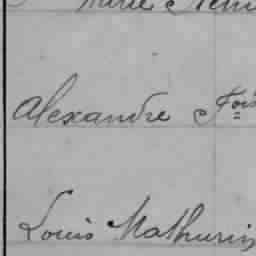 Marie
Alexandre Fois
Louis Mathurin